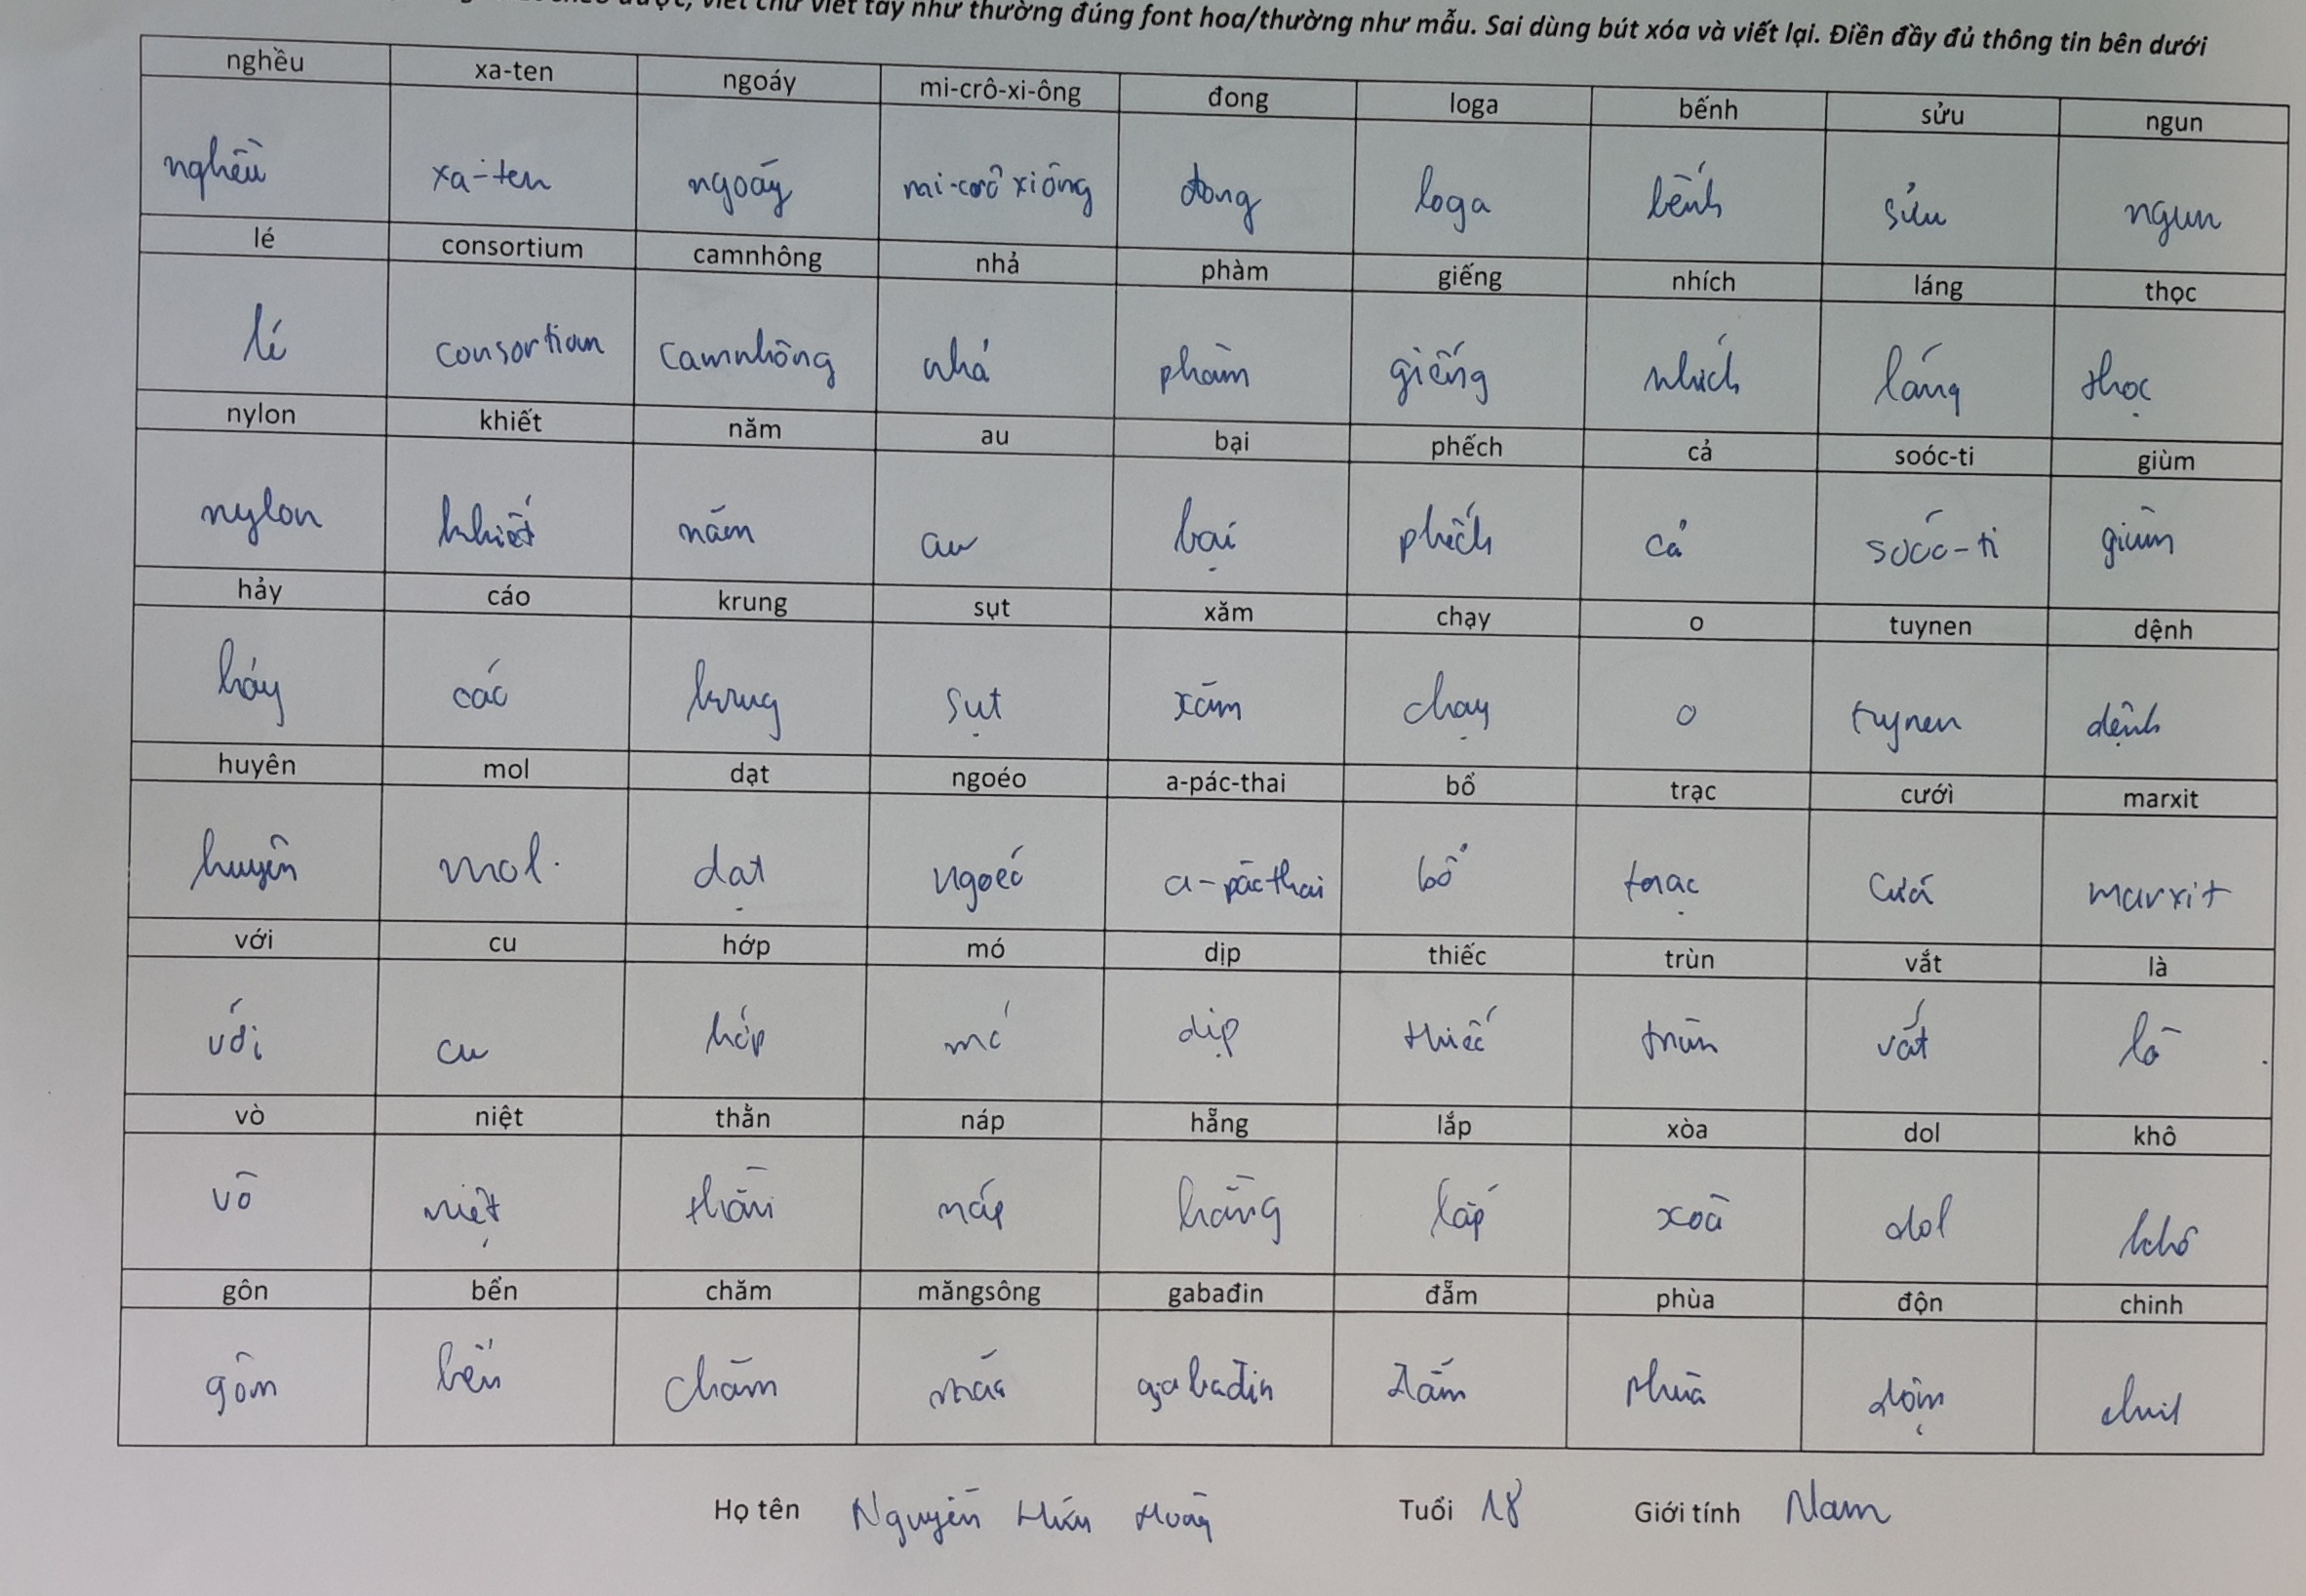 viết chữ viết tay như thường đúng font hoa/thường như mẫu. Sai dùng bút xóa và viết lại. Điền đầy đủ thông tin bên dưới
nghều xa-ten ngoáy mi-crô-xi-ông đong loga bếnh sửu ngun
nghều xa-ten ngoáy mi-crô xiông đong loga bếnh sửu ngun
lé consortium camnhông nhả phàm giếng nhích láng thọc
lé consortium camnhông nhả phàm giếng nhích láng thọc
nylon khiết năm au bại phếch cả soóc-ti giùm
nylon khiết năm au bại phếch cả soóc-ti giùm
hảy cáo krung sụt xăm chạy o tuynen dệnh
hảy các krung sụt xăm chạy o tuynen dệnh
huyên mol dạt ngoéo a-pác-thai bổ trạc cưới marxit
huyên mol dạt ngoéo a-pácthai bổ trạc marxit
với cu hớp mó dịp thiếc trùn vắt là
với cu hớp mó dịp thiếc trùn vắt là
vò niệt thằn náp hẵng lắp xòa dol khô
vò niệt thằn náp hẵng lắp xoà dol khô
gôn bển chăm măngsông gabađin đẵm phùa độn chinh
gôn bển chăm gabađin đẵm phùa độn
Họ tên Nguyễn Tuổi 18 Giới tính Nam